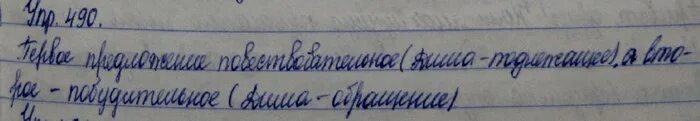 Упр. 490.
Первое предложение повествовательное (Дима - подлежащее), а вто-
рое - побудительное (Дима - обращение)